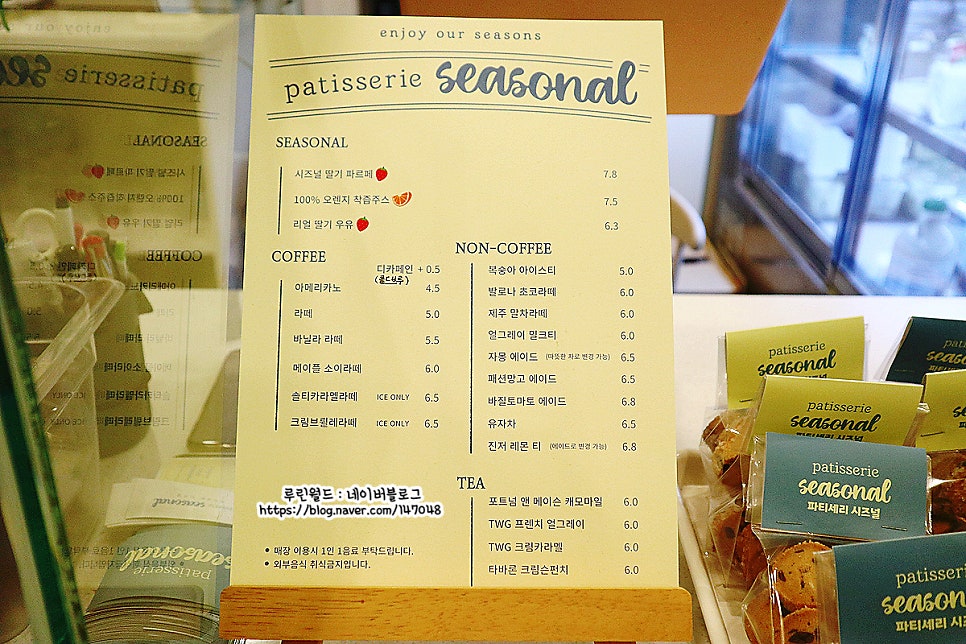 enjoy our seasons
patisserie seasonal
SEASONAL
시즈널 딸기 파르페 7.8
100% 오렌지 착즙주스 7.5
리얼 딸기 우유 6.3
COFFEE
디카페인 + 0.5
(콜드브루)
아메리카노 4.5
라떼 5.0
바닐라 라떼 5.5
메이플 소이라떼 6.0
솔티카라멜라떼 ICE ONLY 6.5
크림브륄레라떼 ICE ONLY 6.5
NON-COFFEE
복숭아 아이스티 5.0
발로나 초코라떼 6.0
제주 말차라떼 6.0
얼그레이 밀크티 6.0
자몽 에이드 (따뜻한 차로 변경 가능) 6.5
패션망고 에이드 6.5
바질토마토 에이드 6.8
유자차 6.5
진저 레몬 티 (에이드로 변경 가능) 6.8
TEA
포트넘 앤 메이슨 캐모마일 6.0
TWG 프렌치 얼그레이 6.0
TWG 크렘카라멜 6.0
타바론 크림슨펀치 6.0
루린월드 : 네이버블로그
https://blog.naver.com/147048
• 매장 이용시 1인 1음료 부탁드립니다.
• 외부음식 취식금지입니다.
patisserie
seasonal
patisserie
seasonal
patisserie
seasonal
파티세리 시즈널
patisserie
seasonal
파티세리 시즈널